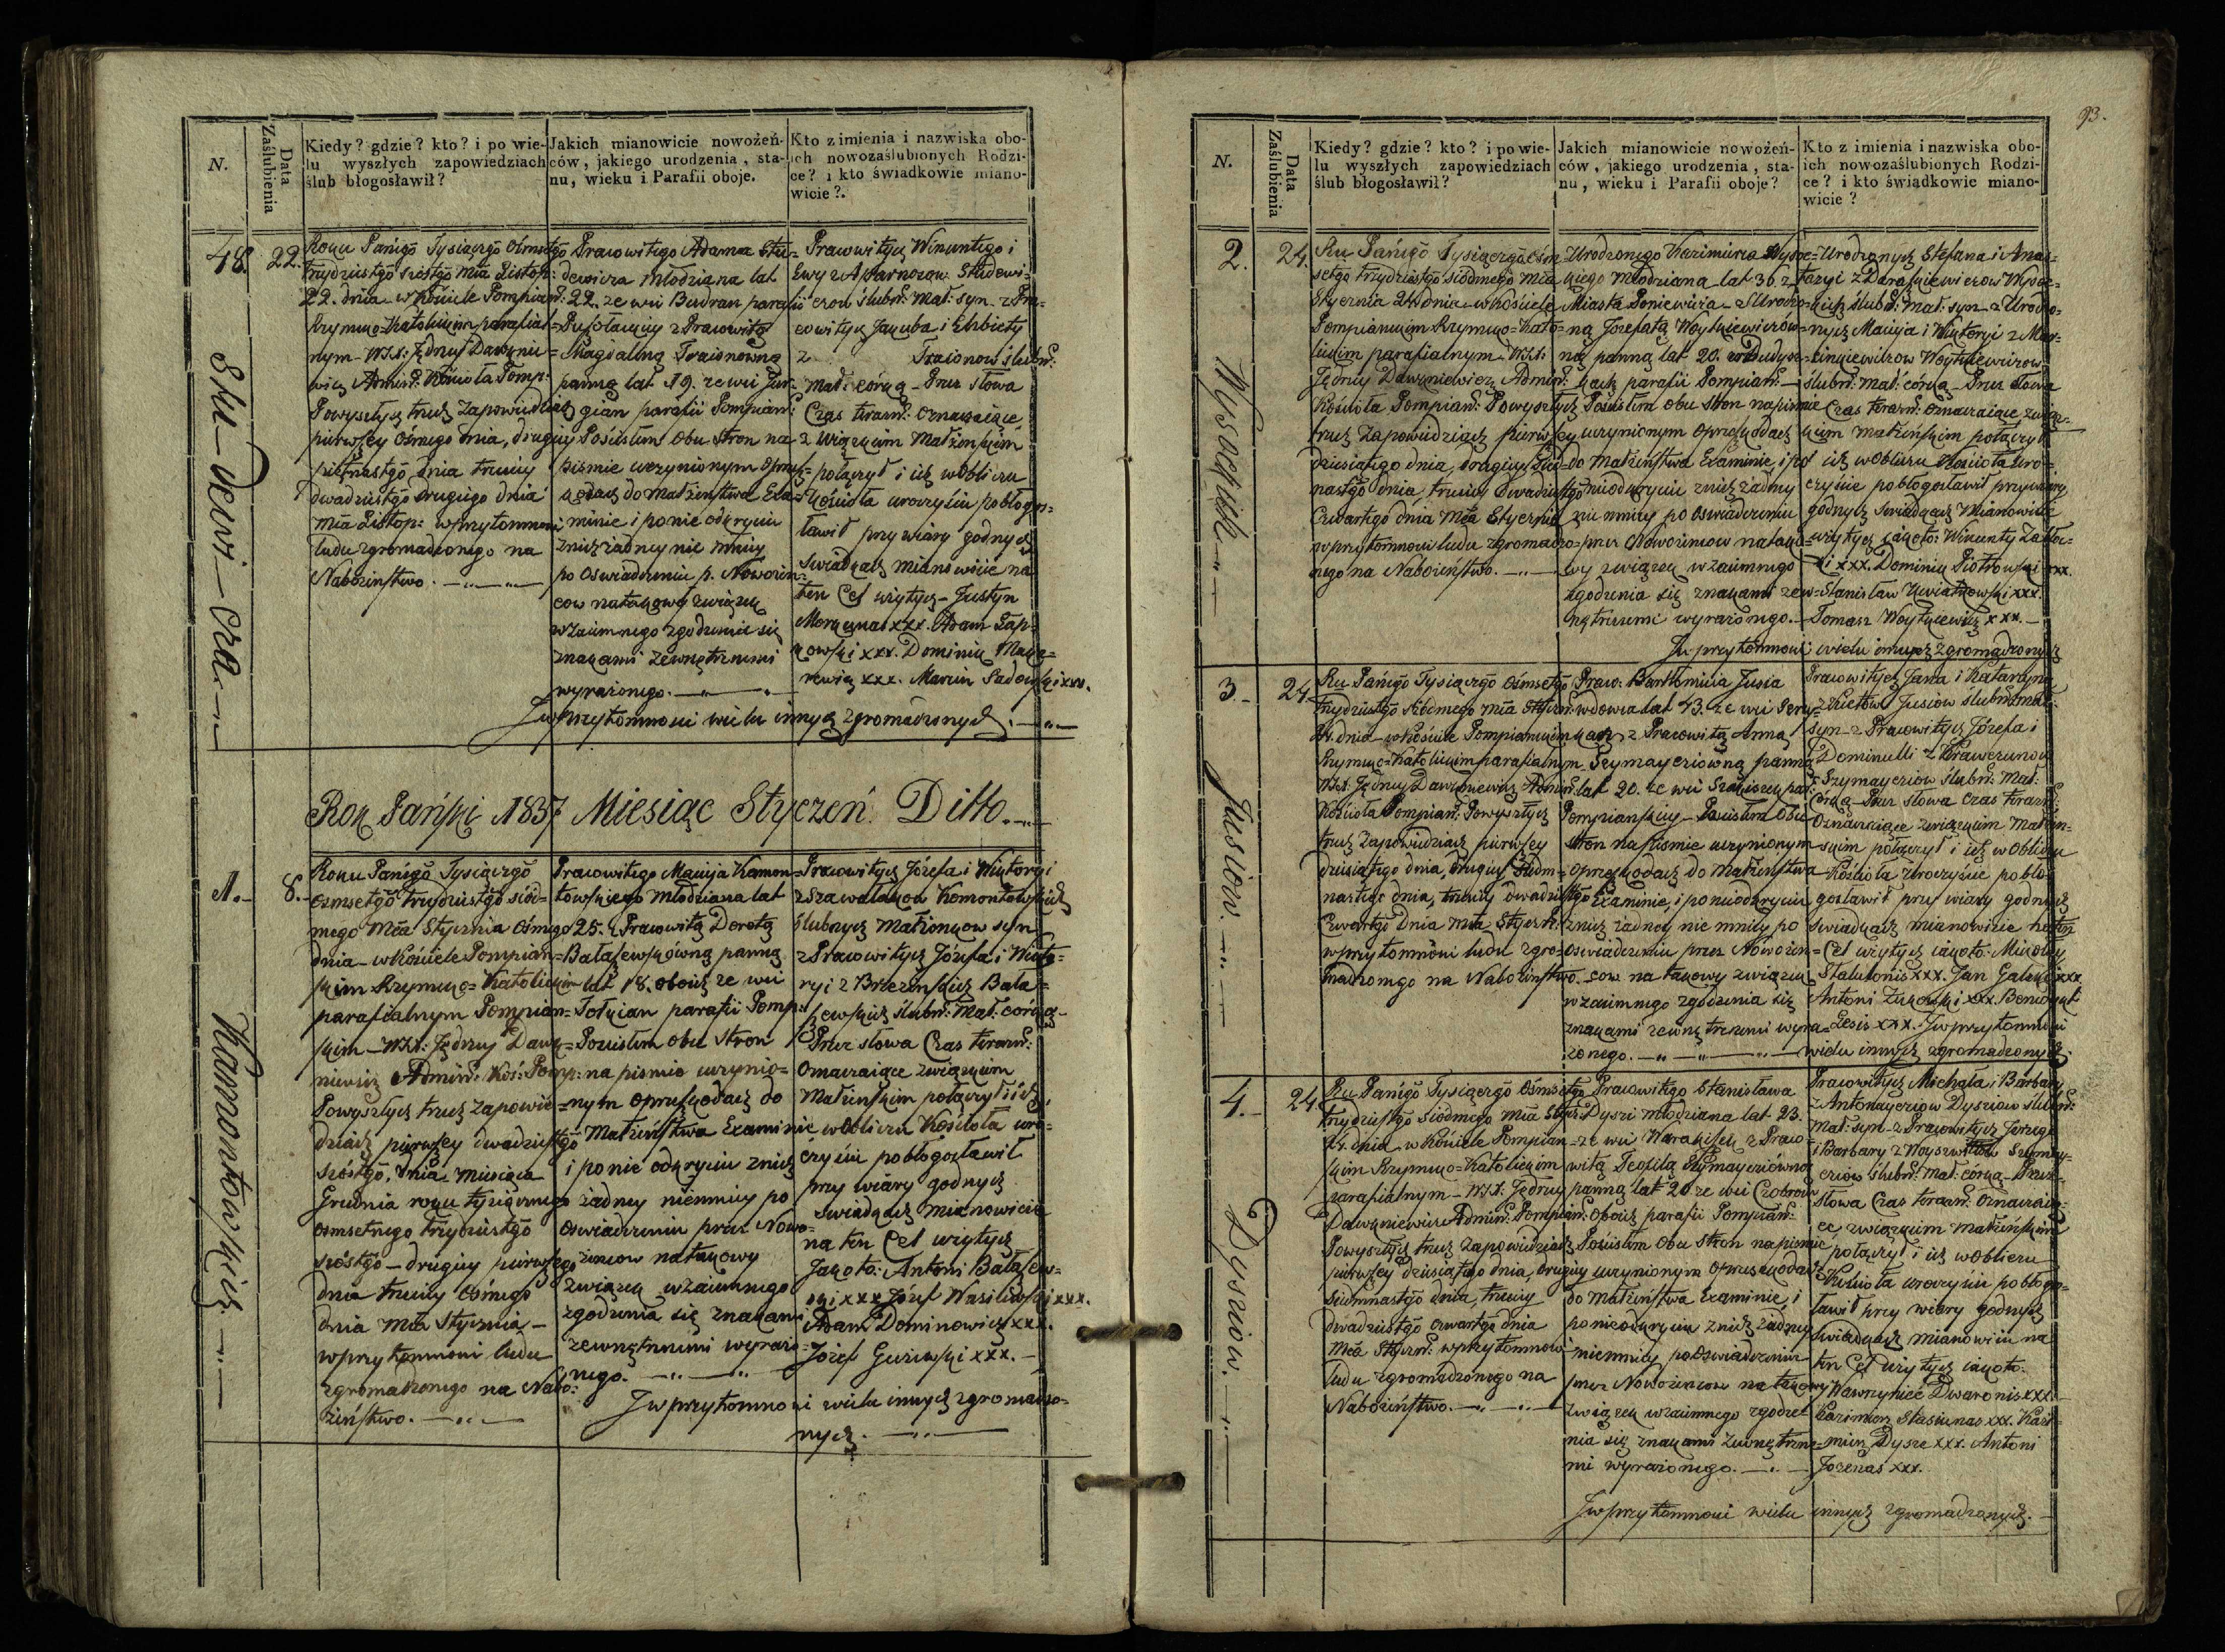 N.
Data
Zaślubienia
Kiedy? gdzie? kto? i po wie-
lu wyszłych zapowiedziach
ślub błogosławił?
Jakich mianowicie nowożeń-
ców, jakiego urodzenia, sta-
nu, wieku i Parafii oboje.
Kto z imienia i nazwiska obo-
ich nowozaślubionych Rodzi-
ce? i kto świadkowie miano-
wicie?
48.
22.
Roku Pańigō Tysiącżgō Ośmsetgō
trzydziestgō szóstgō mĩa Listop:
22. dnia w Kościele Pompiań:
Rzymsko-Katolickim parafial=
nym - WJX: Jędrzej Dawknie=
wicz Admiń: Kościoła Pomp:
Powyszłych trzech Zapowiedziach
pierwszey Ośmego dnia, drugiey
piętnastgō dnia trzeciey
dwadziestgō drugiego dnia
mĩa Listop: wprzytomności
ludu zgromadzonego na
Nabożeństwo.
Pracowitego Adama Stu=
dewicza Młodziana lat
22. ze wsi Budran parafii
z Pracowitą
Magdaleną Traionowną
panną lat 19. ze wsi Jur=
gian parafii Pompiań:
Posústem Obu Stron na
pismie uczynionym Oprzesz=
kodach do małżeństwa Exa=
minie i po nie odkryciu
znich żadney nie mniey
po Oswiadczeniu p. Nowożeń=
cow natakowy związek
wzaiemnego zgodzenia się
znakami zewnętrznemi
wyrażonego.
Pracowitych Wincentego i
Ewy z Studewi=
czow ślubń: Mał: syn - z Pra=
cowitych Jakuba i Elżbiety
z Traionow ślubń:
Mał: córką - Przez Słowa
Czas teraźń: Oznaczaiące
z Wiązkiem Małżeńskim
połączył i ich wObliczu
Kościoła uroczyście pobłogos=
ławił przy wiary godnych
Swiadkach mianowicie na
ten Cel użytych - Justyn
xxx. Adam Łap=
kowski xxx. Dominik Maka=
rewicz xxx. Marcin Sadowski xxx.
J wprzytomnosci wielu innych zgromadzonych.
Stu-dewi-cza
Rok Pański 1837 Miesiąc Styczeń. Ditto.
1.
8.
Roku Pańigō Tysiącżgō
ośmsetgō trzydziestgō siód=
mego Mĩa Stycznia Ośmego
dnia - wKościele Pompian=
skim Rzymsko=Katolickim
parafialnym Pompian=
skim - WJX: Jędrzej Dawk=
niewicz Admiń: Koś: Pomp:
Powyszłych trzech zapowie=
dziach pierwszey dwadziestgō
szóstgō, dnia Miesiąca
Grudnia roku tysiącznego
osmsetnego trzydziestgō
szóstgō - drugiey pierwszego
dnia trzeciey Ośmego
dnia Mĩa Stycznia -
wprzytomnosci ludu
zgromadzonego na Nabo=
żeństwo.
Pracowitego Macieja Kamon=
towskiego Młodziana lat
25. z Pracowitą Dorotą
Bałaszewskówną panną
lat 18. oboich ze wsi
Tolkian parafii Pomp:
Posústem obu Stron
na pismie uczynio=
nym oprzeszkodach do
Małżeństwa Examinie
i po nie odkryciu znich
żadney niemniey po
Oswiadczeniu przez Nowo=
żeńcow natakowy
związek wzaiemnego
zgodzenia się znakami
zewnętrznemi wyrażo=
nego.
Pracowitych Józefa i Wiktoryi
z Szawałakow Kamontowskich
ślubnych Małżonkow syn
z Pracowitych Józefa i Wikto=
ryi z Brzezinskich Bała=
szewskich ślubń: Mał: córką -
Przez słowa Czas teraźń:
Oznaczaiące związkiem
Małżeńskim połączył i ich
wObliczu Kościoła uro=
czyście pobłogosławił
przy wiary godnych
Swiadkach mianowicie
na ten Cel użytych
Jakoto: Antoni Bałaszew=
ski xxx Józef Wasilewski xxx.
Adam Dominowicz xxx.
Józef xxx. -
J wprzytomnosci wielu innych zgromadzo=
nych.
Kamontowskich
93.
N.
Data
Zaślubienia
Kiedy? gdzie? kto? i po wie-
lu wyszłych zapowiedziach
ślub błogosławił?
Jakich mianowicie nowożeń-
ców, jakiego urodzenia, sta-
nu, wieku i Parafii oboje?
Kto z imienia i nazwiska obo-
ich nowozaślubionych Rodzi-
ce? i kto świadkowie miano-
wicie?
2.
24.
Ru Pańigō Tysiącżgō ośm=
setgō trzydziestgō siódmego Mĩa
Stycznia 24 dnia - wKościele
Pompianskim Rzymsko=Kato=
lickim parafialnym - WJX:
Jędrzej Dawkniewicz Admiń:
Kościoła Pompiań: Powyszłych
trzech Zapowiedziach pierwszey
dziesiątego dnia, drugiey Siedm=
nastgō dnia, trzeciey Dwadziestgō
Czwartego dnia Mĩa Stycznia
wprzytomnosci ludu zgromadzo=
nego na Nabożeństwo.
Urodzonego Kazimierza Wysoc=
kiego Młodziana lat 36. z
Miasta Poniewieża - z Urodzo=
ną Jozefatą Woytkiewiczów=
ną panną lat 20. z Dudysz=
kach parafii Pompiań: -
Posústem obu Stron napismie
uczynionym Oprzeszkodach
do Małżeństwa Examinie, i po
nieodkryciu znich żadney
nie mniey po Oswiadczeniu
przez Nowożeńcow natako=
wy związek wzaiemnego
zgodzenia się znakami zew=
nętrznemi wyrażonego.
Urodzonych Stefana i Anas=
tazyi z Daraszkiewiczow Wysoc=
kich ślubń: Mał: syn - z Urodzo=
nych Macieja i Wiktoryi z Mar=
cinkiewiczow Woytkiewiczow
ślubń: Mał: córką - Przez słowa
Czas teraźń: Oznaczaiące związ=
kiem małżeńskim połączył
i ich wObliczu Kościoła uro=
czyście pobłogosławił przy wiary
godnych Swiadkach Mianowicie
użytych jakoto: Wincenty
xxx. Dominik Piotrowski xxx.
Stanisław Kwiatkowski xxx.
Tomasz Woytkiewicz xxx. -
J wprzytomnosci wielu innych zgromadzonych
Wysockich
3.
24.
Ru Pańigō Tysiącżgō Ośmsetgō
trzydziestgō siódmego mĩa Styczń:
24. dnia - wKościele Pompianskim
Rzymsko=Katolickim parafialnym
WJX. Jędrzej Dawkniewicz Admiń:
Kościoła Pompiań: Powyszłych
trzech Zapowiedziach pierwszey
dziesiątego dnia, drugiey Siedm=
nastgō dnia, trzeciey dwadziestgō
Czwartego Dnia Mĩa Styczń:
wprzytomności ludu zgro=
madzonego na Nabożeństwo.
Praw: Bartłomieia Jusia
wdowca lat 43. ze wsi
z Pracowitą Anną
Szymayciówną panną
lat 20. ze wsi par:
Pompianskiey - Posústem Obu
Stron na pismie uczynionym
oprzeszkodach do Małżeństwa
Examinie, i po nieodkryciu
znich żadney nie mniey po
oswiadczeniu przez Nowożeń=
cow na takowy związek
wzaiemnego zgodzenia się
znakami zewnętrznemi wyra=
żonego.
Pracowitych Jana i Katarzyny
Jusiow ślubń: mał:
syn - z Pracowitych Józefa i
Dominelli z
Szymayciow ślubń: Mał:
Córką - Przez słowa czas teraźń:
Oznaczaiące związkiem Małżeń=
skim połączył i ich w Obliczu
Kościoła Uroczyście pobło=
gosławił przy wiary godnych
Swiadkach mianowicie na ten
Cel użytych jakoto: Mikołay
Stalulonis xxx. Jan xxx
Antoni Żukowski xxx. Benedykt
Lesis xxx. J wprzytomności
wielu innych zgromadzonych.
Jusiow.
4.
24.
Ru Pańigō Tysiącżgō Ośmsetgō
trzydziestgō siódmego mĩa Stycz:
24. dnia wKościele Pompian=
skim Rzymsko=Katolickim
parafialnym - WJX: Jędrzej
Dawkniewicz Admiń: Pompiań:
Powyszłych trzech Zapowiedziach
pierwszey dziesiątego dnia, drugiey
Siedmnastgō dnia, trzeciey
dwadziestgō czwartgō dnia
Mĩa Styczń: wprzytomnosci
ludu zgromadzonego na
Nabożeństwo.
Pracowitego Stanisława
Dyszi młodziana lat 23.
ze wsi z Praco=
witą Teofilą Szymayciówną
panną lat 20 ze wsi
Oboich parafii Pompiań:
Posústem Obu Stron napismie
uczynionym Oprzeszkodach
do Małżeństwa Examinie, i
ponieodkryciu znich żadney
niemniey po Oswiadczeniu
przez Nowożeńcow na takowy
związek wzaiemnego zgodze
nia się znakami zewnętrzne=
mi wyrażonego.
Pracowitych Michała i Barbary
z Antonayciow Dysziow ślubń:
Mał: syn - z Pracowitych Jerzego
i Barbary z Szymay=
ciow ślubń: Mał: córką - Przez
Słowa Czas teraźń: Oznaczaią=
ce, związkiem Małżeńskim
połączył i ich wObliczu
Kościoła uroczyście pobłogo=
ławił przy wiary godnych
Swiadkach mianowicie na
ten Cel użytych jakoto:
Wawrzyniec Dwaronis xxx.
Kazimierz Stasiunas xxx. Kazi=
mierz Dysze xxx. Antoni
Jozenas xxx.
J wprzytomnosci wielu innych zgromadzonych.
Dysziow.